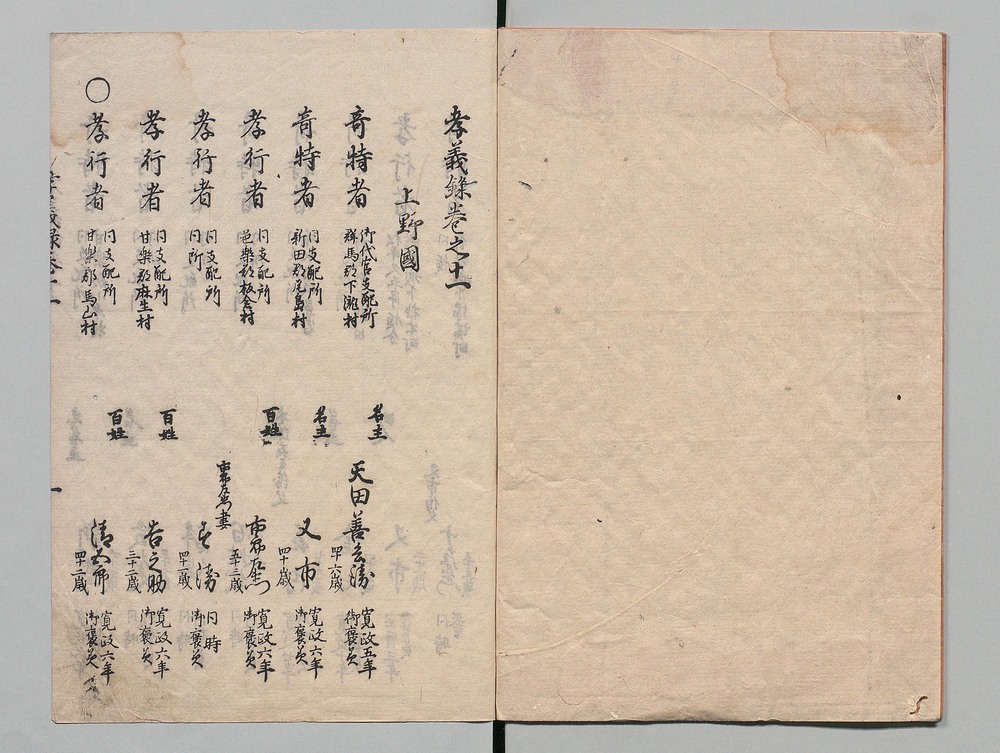 孝義錄卷之十一
上野國
奇特者 御代官支配所 群馬郡下瀧村 名主 天田善兵衛 四十六歳 寛政五年 御褒美
奇特者 同支配所 新田郡尾島村 名主 又市 四十歳 寛政六年 御褒美
孝行者 同支配所 邑樂郡板倉村 百姓 市郎左衛門 五十三歳 寛政六年 御褒美
孝行者 同支配所 同所 市郎左衛門妻 四十一歳 同時 御褒美
孝行者 同支配所 甘樂郡麻生村 百姓 吉之助 三十二歳 寛政六年 御褒美
○孝行者 同支配所 甘樂郡馬山村 百姓 清五郎 四十二歳 寛政六年 御褒美